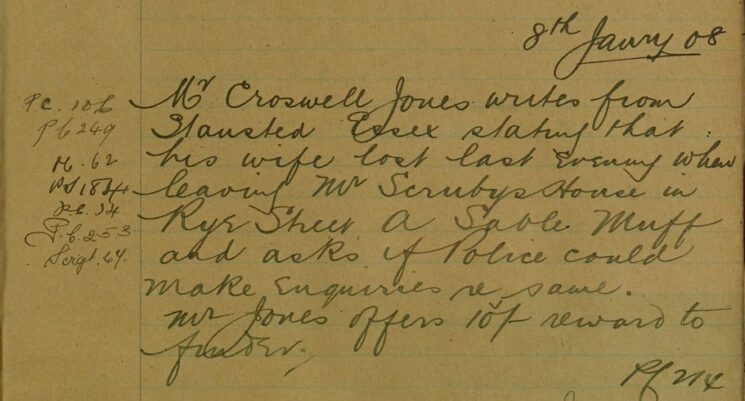 8th Janry 08
P.C. 106
PC 249
H. 62
PS 18
P.C. 34
P.C. 253
Sergt. 64.
Mr Croswell Jones writes from
Stansted Essex stating that
his wife lost last Evening when
leaving Mr Scrubys House in
Rye Street A Sable Muff
and asks if Police could
make Enquiries re same.
Mr Jones offers 10/ reward to
finder.
PC 214